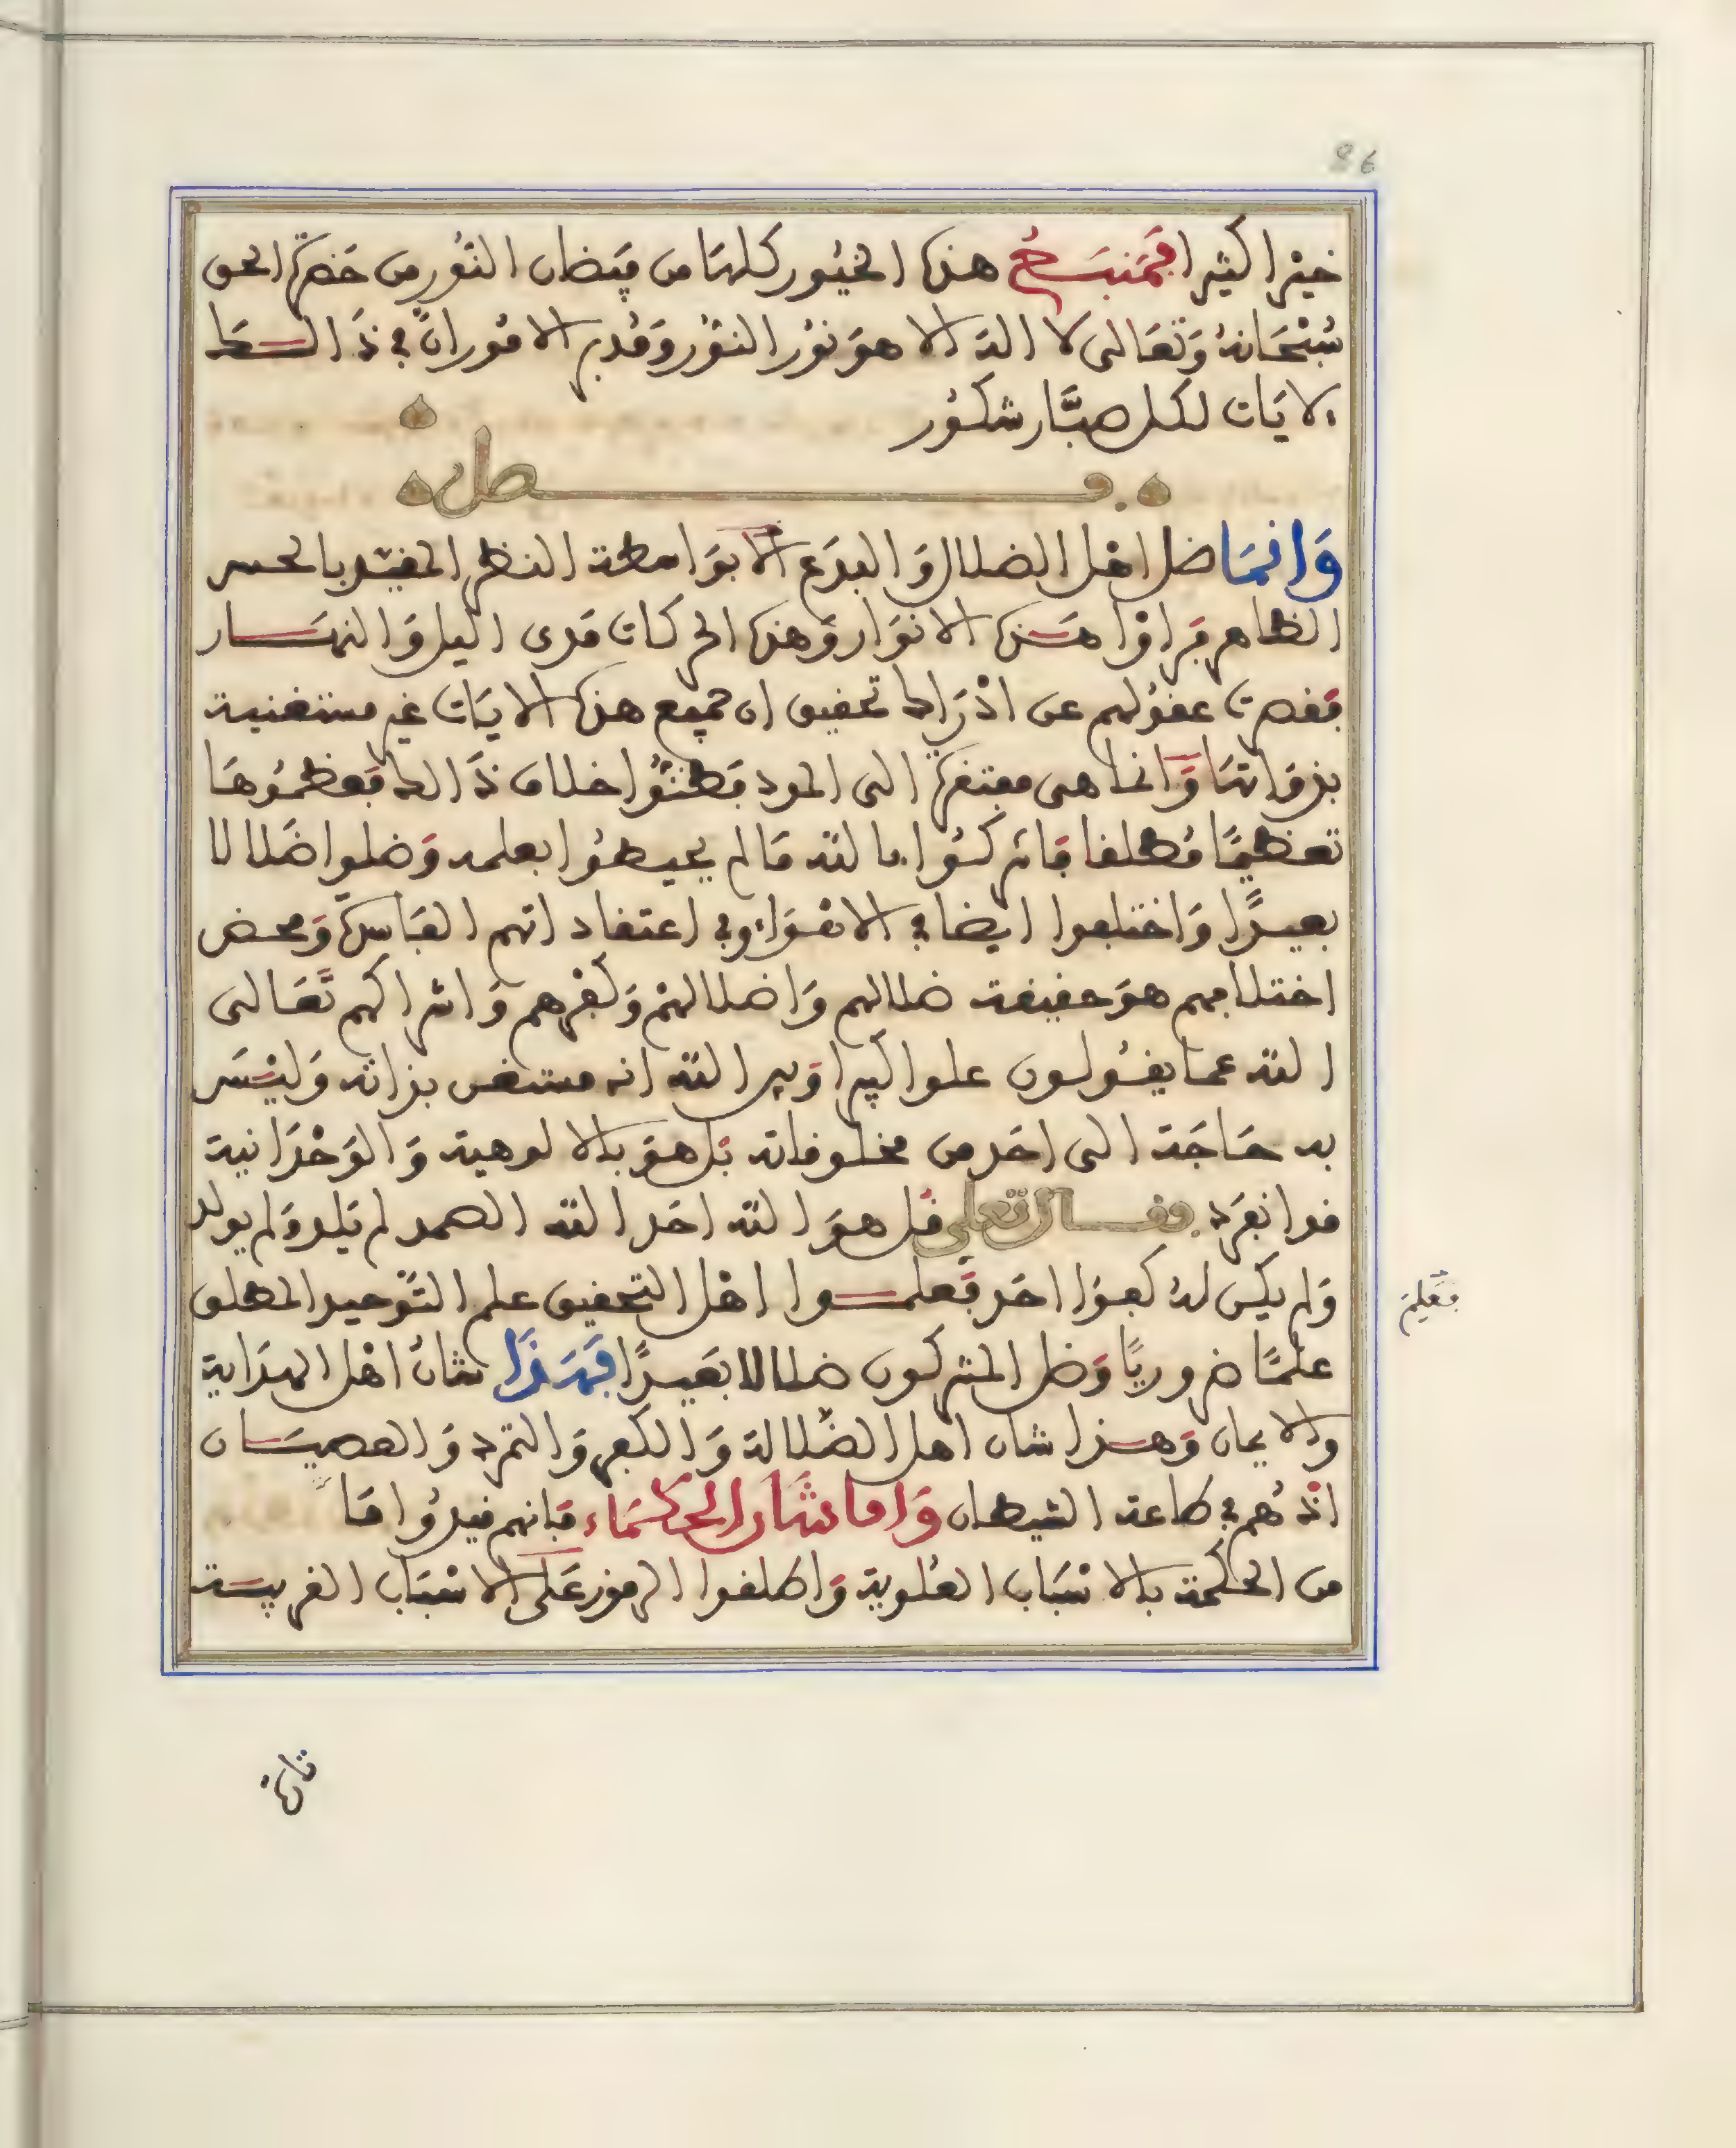 86
خيرا كثيرا فمنبع هذه الخيور كلها من فيضان النور من حضرة الحق
سبحانه وتعالى لا اله الا هو نور النور ومدبر الامور ان في ذالك
لايات لكل صبار شكور
فصل
وانما ضل اهل الضلال والبدع الا بواسطة النظر المقيد بالحس
الظاهر فراوا هذه الانوار وهذه الحركات مدى اليل والنهار
فقصرت عقولهم عن ادراك تحقيق ان جميع هذه الايات غير مستغنية
بذواتها وانما هي مفتقرة الى الموجد فظنوا خلاف ذالك فعظموها
تعظيما مطلقا فاشركوا بالله ما لم يحيطوا بعلمه وضلوا ضلالا
بعيدا واختلفوا ايضا في الاهواء وفي اعتقاداتهم الفاسدة ومحض
اختلافهم هو حقيقة ضلالهم واضلالهم وكفرهم واشراكهم تعالى
الله عما يقولون علوا كبيرا وبين الله انه مستغن بذاته وليس
به حاجة الى احد من مخلوقاته بل هو بالالوهية والوحدانية
قد انفرد وقال تعلى قل هو الله احد الله الصمد لم يلد ولم يولد
ولم يكن له كفوا احد فعلموا اهل التحقيق علم التوحيد المطلق
فعلم
علما ضروريا وضل المشركون ضلالا بعيدا فهذا شان اهل الهداية
والايمان وهذا شان اهل الضلالة والكفر والتمرد والعصيان
اذ هم في طاعة الشيطان واما شان الحكماء فانهم قيدوا ما
من الحكمة بالاسباب العلوية واطلقوا الرموز على الاسباب القريبة